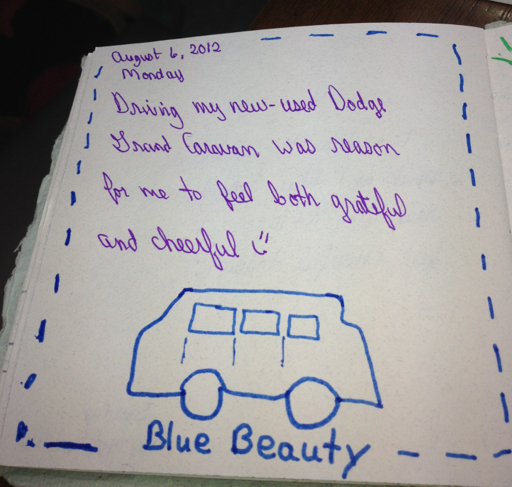 August 6, 2012
Monday
Driving my new-used Dodge
Grand Caravan was reason
for me to feel both grateful
and cheerful
Blue Beauty